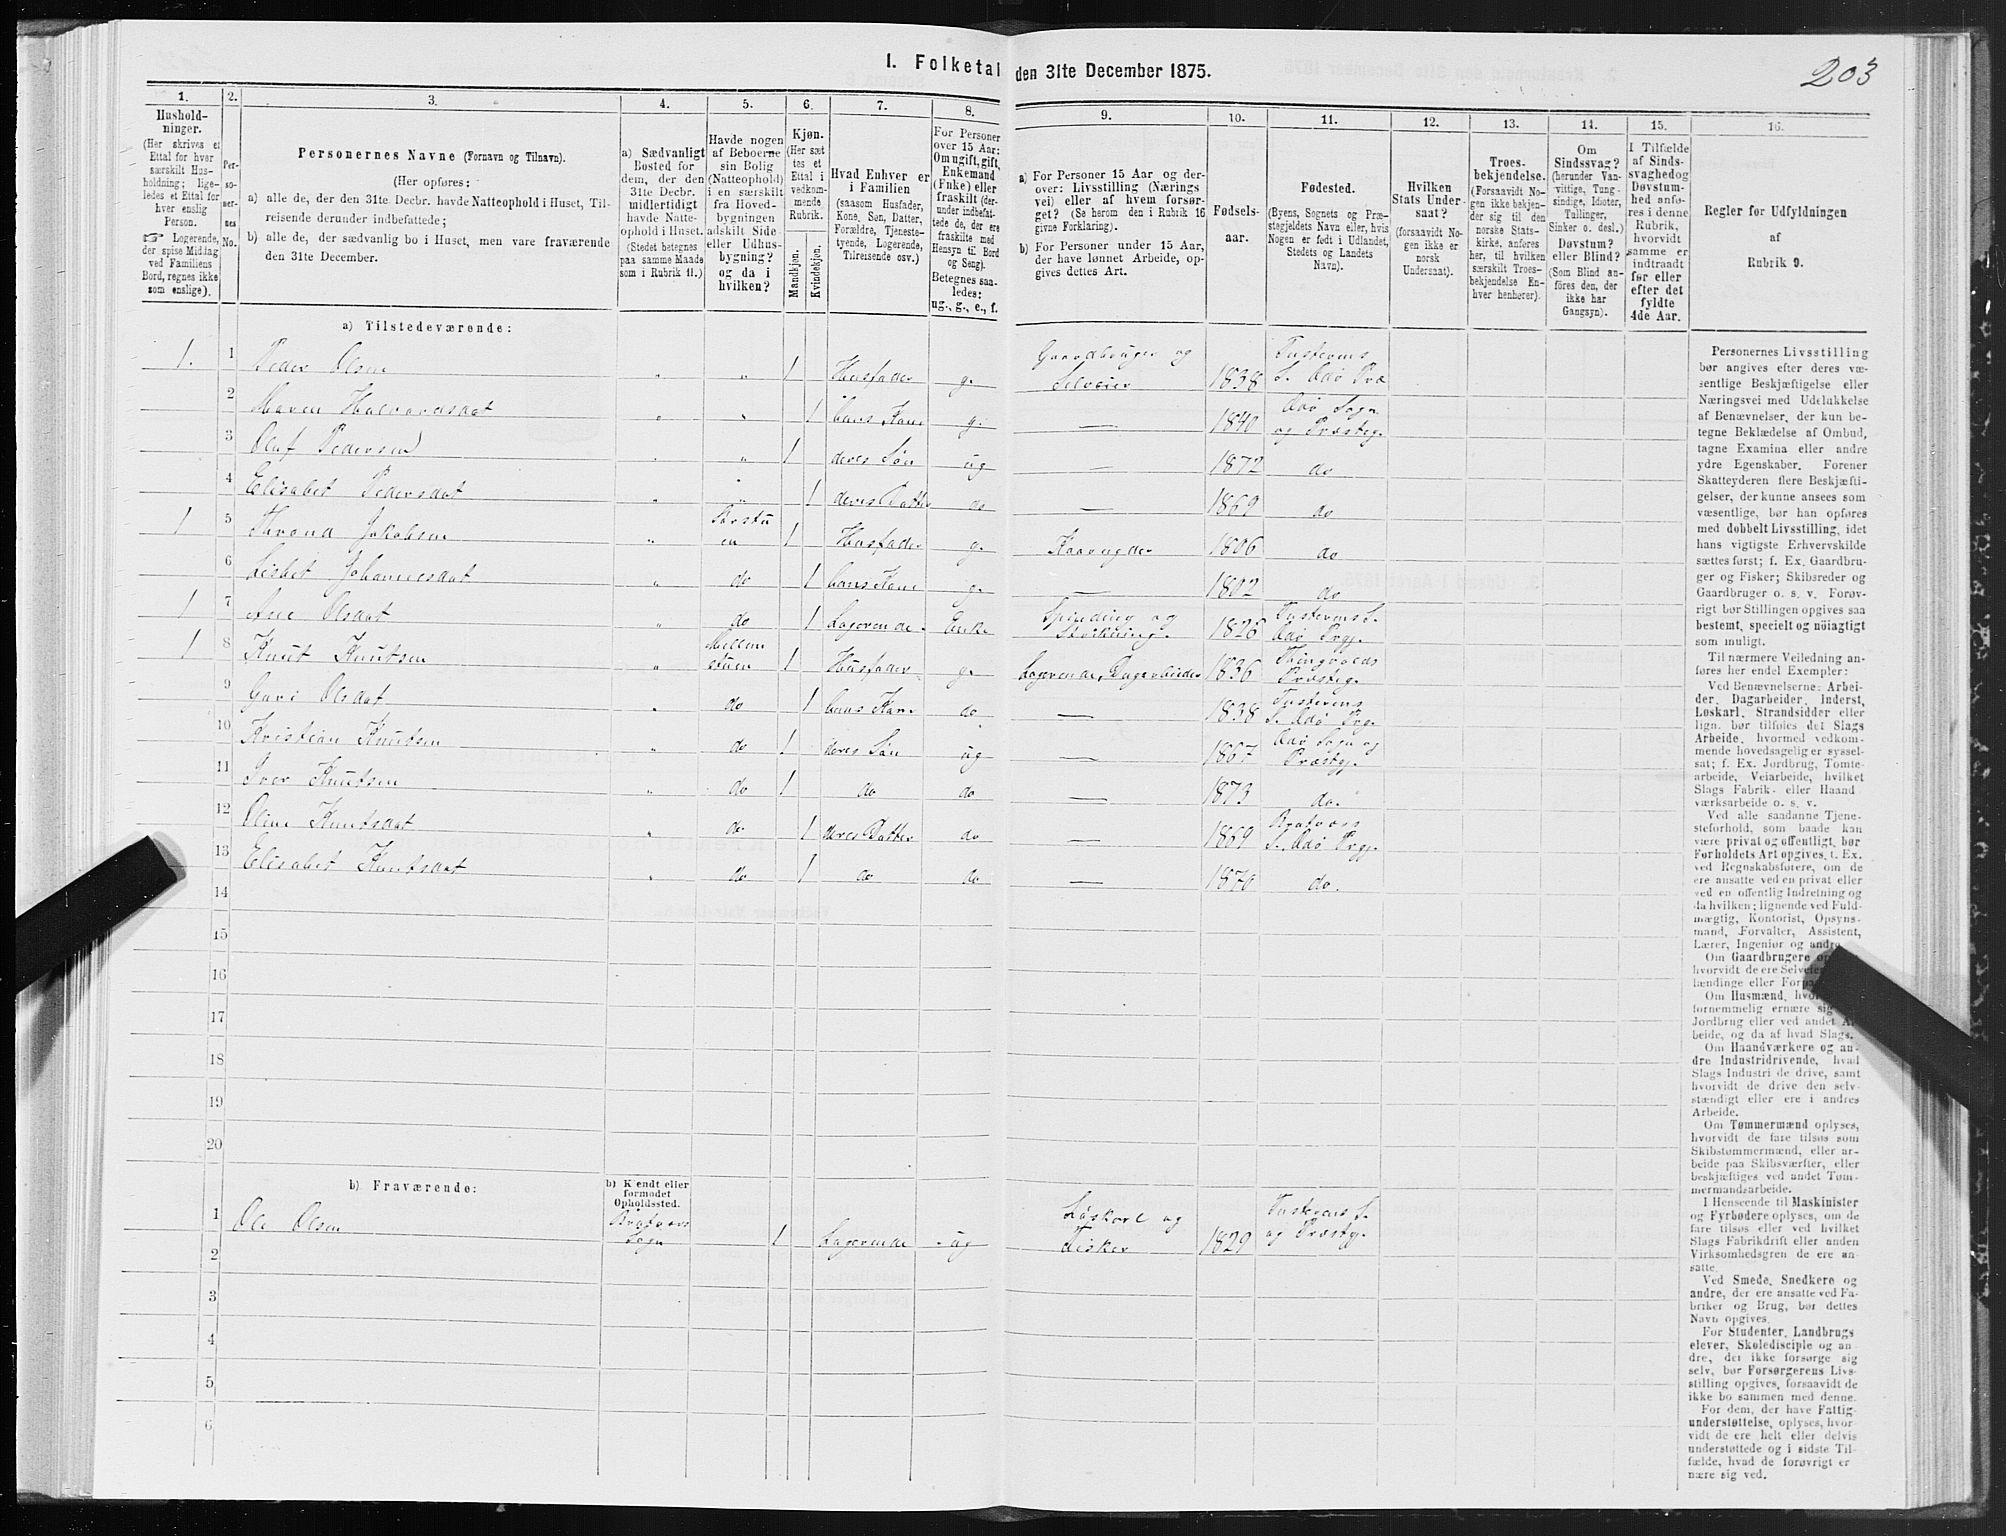 I. Folketal den 31te December 1875.
203
1. 2. 3. 4. 5. 6. 7. 8. 9. 10. 11. 12. 13. 14. 15. 16.
Hushold-
ninger.
(Her skrives et
Ettal for hver
særskilt Hus-
holdning; lige-
ledes et Ettal for
hver enslig
Person.
☞ Logerende,
der spise Middag
ved Familiens
Bord, regnes ikke
som enslige).
Per-
so-
ner-
nes
No.
Personernes Navne (Fornavn og Tilnavn).
(Her opføres:
a) alle de, der den 31te Decbr. havde Natteophold i Huset, Til-
reisende derunder indbefattede;
b) alle de, der sædvanlig bo i Huset, men vare fraværende
den 31te December.
a) Sædvanligt
Bosted for
dem, der den
31te Decbr.
midlertidigt
havde Natte-
ophold i Huset.
(Stedet betegnes
paa samme Maade
som i Rubrik 11.)
Havde nogen
af Beboerne
sin Bolig
(Natteophold)
i en særskilt
fra Hoved-
bygningen
adskilt Side-
eller Udhus-
bygning?
og da i
hvilken?
Kjøn.
(Her sæt-
tes et
Ettal i
vedkom-
mende
Rubrik.
Mandkjøn.
Kvindekjøn.
Hvad Enhver er
i Familien
(saasom Husfader,
Kone, Søn, Datter,
Forældre, Tjeneste-
tyende, Logerende,
Tilreisende osv.)
For Personer
over 15 Aar:
Om ugift, gift,
Enkemand
(Enke) eller
fraskilt (der-
under indbefat-
tede de, der ere
fraskilte med
Hensyn til Bord
og Seng).
Betegnes saa-
ledes:
ug., g., e., f.
a) For Personer 15 Aar og der-
over: Livsstilling (Nærings-
vei) eller af hvem forsør-
get? (Se herom den i Rubrik 16
givne Forklaring).
b) For Personer under 15 Aar,
der have lønnet Arbeide, op-
gives dettes Art.
Fødsels-
aar.
Fødested.
(Byens, Sognets og Præ-
stegjeldets Navn eller, hvis
Nogen er født i Udlandet,
Stedets og Landets
Navn).
Hvilken
Stats Under-
saat?
(forsaavidt No-
gen ikke er
norsk
Undersaat).
Troes-
bekjendelse.
(Forsaavidt No-
gen ikke bekjen-
der sig til den
norske Stats-
kirke, anføres
her, til hvilken
særskilt Troes-
bekjendelse En-
hver henhører).
Om
Sindssvag?
(herunder Van-
vittige, Tung-
sindige, Idioter,
Tullinger,
Sinker o. desl.)
Døvstum?
eller Blind?
(Som Blind an-
føres den, der
ikke har
Gangsyn).
I Tilfælde
af Sinds-
svaghed og
Døvstum-
hed anfø-
res i denne
Rubrik,
hvorvidt
samme er
indtraadt
før eller
efter det
fyldte
4de Aar.
Regler for Udfyldningen
af
Rubrik 9.
a) Tilstedeværende:
1. 1 Peder Olsen " " 1 Husfader g. Gaardbruger og Selveier 1838 Tusterens S. Ædø Præ
2 Maren Halvordsdat " " 1 hans Kone g. — 1840 Ædø Sogn og Præsteg.
3 Oluf Pedersen " " 1 deres Søn ug — 1872 do
4 Elisabet Pedersdat " " 1 deres Datter do — 1869 do
1 5 Thrond Jakobsen " Borstuen 1 Husfader g. Kaarnyder 1806 do
6 Lisbet Johannesdat " do 1 hans Kone g. — 1802 do
1 7 Ane Olsdat " do 1 Logerende Enke Spinding og Strikning. 1826 Tusterens S. Ædø Prgj.
1 8 Knut Knutsen " Mellemstuen 1 Husfader g. Logerende, Dagarbeider 1836 Thingvolds Præsteg.
9 Guri Olsdat " do 1 hans Kone do — 1838 Tusterens S. Ædø Prg.
10 Kristian Knutsen " do 1 deres Søn ug — 1867 Ædø Sogn og Præstgj.
11 Iver Knutsen " do 1 do do — 1873 do.
12 Oline Knutsdat " do 1 deres Datter do — 1869 Bratværs S. Ædø Prgj.
13 Elisabet Knutsdat " do 1 do do — 1870 do.
14
15
16
17
18
19
20
b) Fraværende:
b) Kjendt eller
formodet
Opholdssted.
1 Ole Olsen Bratværs Sogn 1 Logerende ug Løskarl og Fisker 1829 Tusterens S. og Præstg.
2
3
4
5
6
Personernes Livsstilling
bør angives efter deres væ-
sentlige Beskjæftigelse eller
Næringsvei med Udelukkelse
af Benævnelser, der kun be-
tegne Beklædelse af Ombud,
tagne Examina eller andre
ydre Egenskaber. Forener
Skatteyderen flere Beskjæfti-
gelser, der kunne ansees som
væsentlige, bør han opføres
med dobbelt Livsstilling, idet
hans vigtigste Erhvervskilde
sættes først; f. Ex. Gaardbru-
ger og Fisker; Skibsreder og
Gaardbruger o. s. v. Forøv-
rigt bør Stillingen opgives saa
bestemt, specielt og nøiagtigt
som muligt.
Til nærmere Veiledning an-
føres her endel Exempler:
Ved Benævnelserne: Arbei-
der, Dagarbeider, Inderst,
Løskarl, Strandsidder eller
lign. bør tilføies det Slags
Arbeide, hvormed vedkom-
mende hovedsagelig er syssel-
sat; f. Ex. Jordbrug, Tomte-
arbeide, Veiarbeide, hvilket
Slags Fabrik- eller Haand-
værksarbeide o. s. v.
Ved alle saadanne Tjene-
steforhold, som baade kan
være privat og offentligt, bør
Forholdets Art opgives, t. Ex.
ved Regnskabsførere, om de
ere ansatte ved en privat eller
ved en offentlig Indretning og
da hvilken; lignende ved Fuld-
mægtig, Kontorist, Opsyns-
mand, Forvalter, Assistent,
Lærer, Ingeniør og andre.
Om Gaardbrugere op
hvorvidt de ere Selveie
lændinge eller Forp
Om Husmænd, hvo
fornemmelig ernære sig
Jordbrug eller ved andet Ar-
beide, og da af hvad Slags.
Om Haandværkere og an-
dre Industridrivende, hvad
Slags Industri de drive, samt
hvorvidt de drive den selv-
stændigt eller ere i andres
Arbeide.
Om Tømmermænd oplyses,
hvorvidt de fare tilsøs som
Skibstømmermænd, eller ar-
beide paa Skibsværfter, eller
beskjæftiges ved andet Tøm-
mermandsarbeide.
I Henseende til Maskinister
og Fyrbødere oplyses, om de
fare tilsøs eller ved hvilket
Slags Fabrikdrift eller anden
Virksomhedsgren de ere an-
satte.
Ved Smede, Snedkere og
andre, der ere ansatte ved Fa-
briker og Brug, bør dettes
Navn opgives.
For Studenter, Landbrugs-
elever, Skoledisciple og an-
dre, der ikke forsørge sig
selv, bør Forsørgerens Livs-
stilling opgives, forsaavidt de
ikke bo sammen med denne.
For dem, der have Fattig-
understøttelse, oplyses, hvor-
vidt de ere helt eller delvis
understøttede og i sidste Til-
fælde, hvad de forøvrigt er-
nære sig ved.